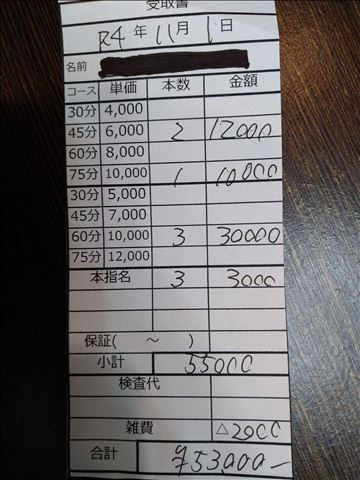 受取書
R4年 11月 1日
名前
コース 単価 本数 金額
30分 4,000
45分 6,000 2 12000
60分 8,000
75分 10,000 1 10000
30分 5,000
45分 7,000
60分 10,000 3 30000
75分 12,000
本指名 3 3000
保証( ～ )
小計 55000
検査代
雑費 △2000
合計 ¥53,000-